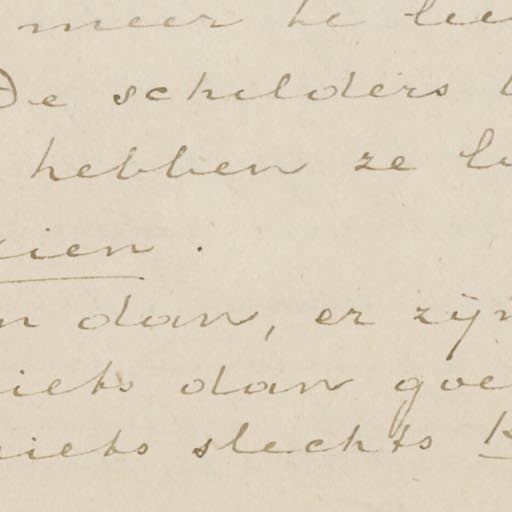 meer te
De schilders
hebben ze
zien.
dan, er zijn
niets dan
niets slechts